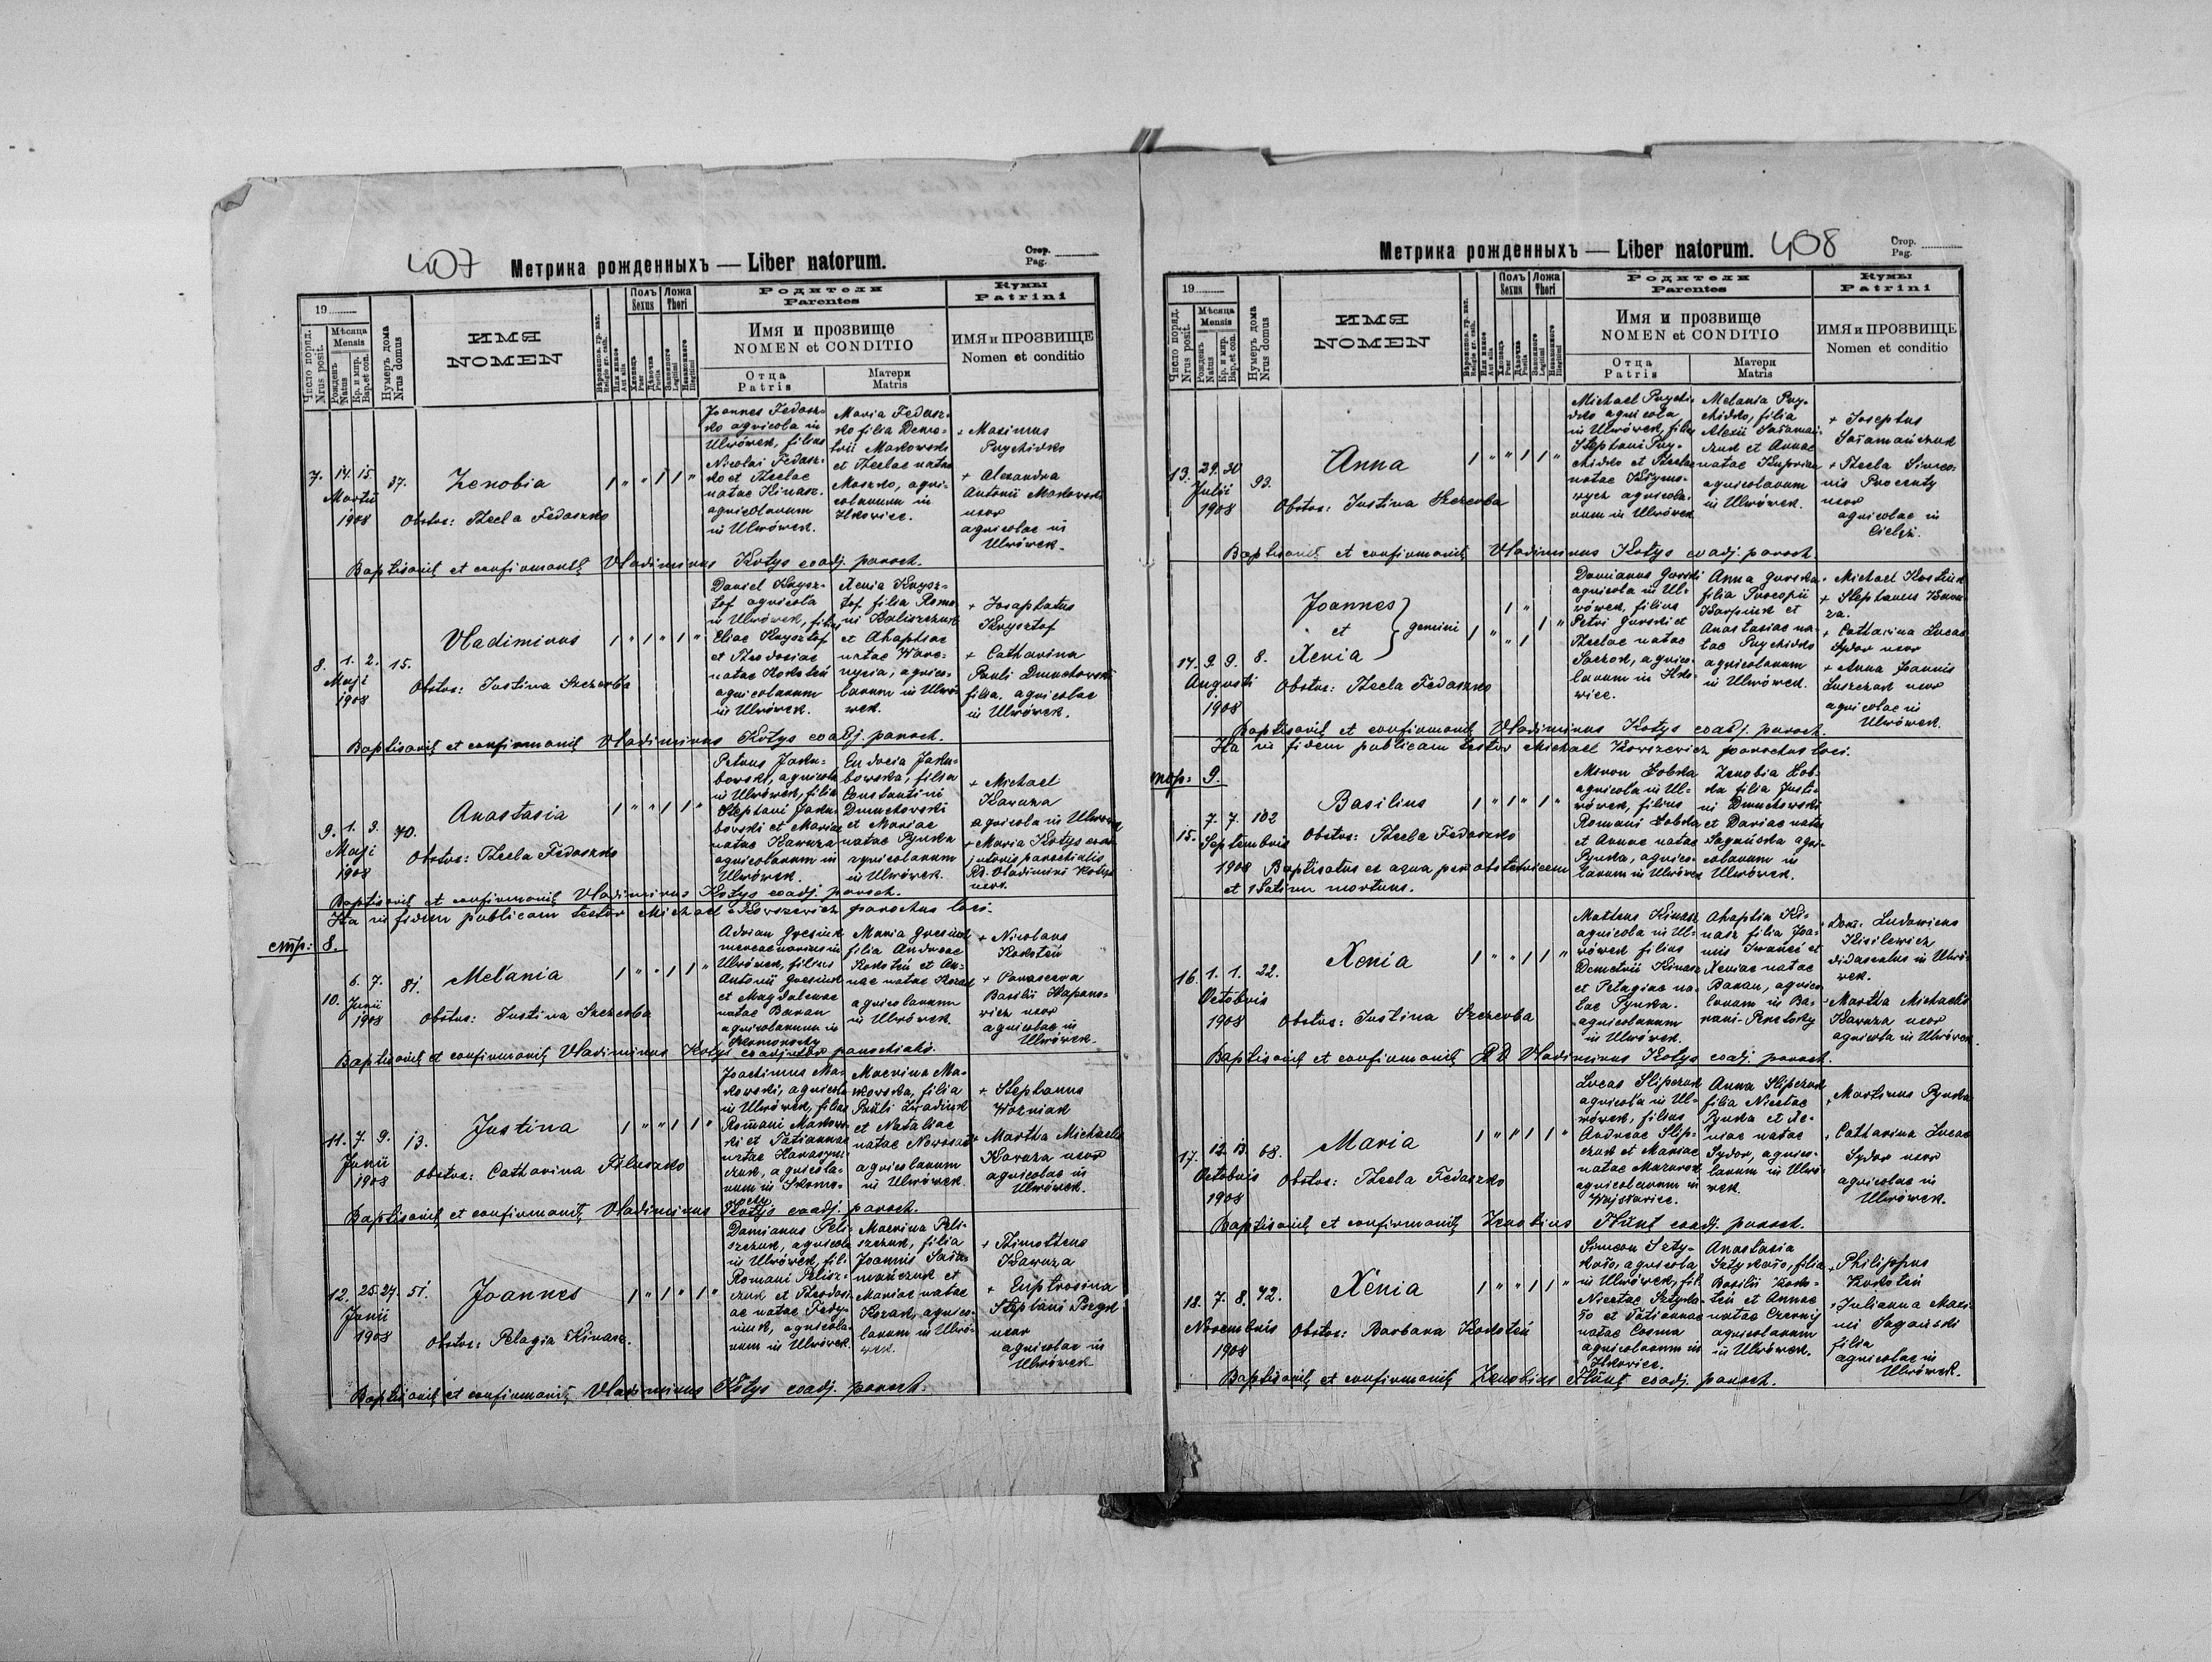 407 Метрика рожденныхъ — Liber natorum.
Стор.
Pag.
19
Число поряд.
Nrus posit.
Мѣсяца
Mensis
Рожденъ
Natus
Кр. и мир.
Bap. et con.
Нумеръ дома
Nrus domus
ИМЯ
NOMEN
Вѣроиспов. гр. кат.
Religio gr. cath.
Или иное
Aut alia
Полъ
Sexus
Хлопецъ
Puer
Дѣвочка
Puella
Ложа
Thori
Законного
Legitimi
Незаконного
Illegitimi
Родители
Parentes
Имя и прозвище
NOMEN et CONDITIO
Отца
Patris
Матери
Matris
Кумы
Patrini
ИМЯ и ПРОЗВИЩЕ
Nomen et conditio
7.
14. 15.
Martii
1908
37.
Zenobia
Obstet: Thecla Fedaszko
1 " " 1 1 "
Joannes Fedasz-
ko agricola in
Ulwówek, filius
Nicolai Fedasz-
ko et Theclae
natae Kinasz.
agricolarum
in Ulwówek.
Maria Fedasz-
ko filia Deme-
trii Markowski
et Theclae natae
Moszko, agri-
colarum in
Ilkowice.
+ Maximus
Prychidko
+ Alexandra
Antonii Markowski
uxor
agricolae in
Ulwówek.
Baptisavit et confirmavit Vladimirus Kotys coadj. paroch.
8.
1. 2.
Maji
1908
15.
Vladimirus
Obstet: Justina Szczerba
1 " 1 " 1 "
Daniel Krysz-
tof agricola
in Ulwówek, filius
Eliae Krysztof
et Theodosiae
natae Kostiú
agricolarum
in Ulwówek.
Xenia Krysz-
tof filia Roma-
ni Kaliszczuk
et Ahaphiae
natae Ware-
nycia, agrico-
larum in Ulwó-
wek.
+ Josaphatus
Krysztof
+ Catharina
Pauli Dmuchowski
filia. agricolae
in Ulwówek.
Baptisavit et confirmavit Vladimirus Kotys coadj. paroch.
9.
1. 3.
Maji
1908
70.
Anastasia
Obstet: Thecla Fedaszko
1 " " 1 1 "
Petrus Jaku-
bowski, agricola
in Ulwówek, filius
Stephani Jaku-
bowski et Mariae
natae Kawuza
agricolarum in
Ulwówek.
Eudocia Jaku-
bowska, filia
Constantini
Dmuchowski
et Mariae
natae Pynka
agricolarum
in Ulwówek.
+ Michael
Kawuza
agricola in Ulwówek
+ Maria Kotys coad-
jutoris parochialis
Rd. Vladimiri Kotys
uxor.
Baptisavit et confirmavit Vladimirus Kotys coadj. paroch.
Ita in fidem publicam testor Michael Korszewicz parochus loci.
стр: 8.
10.
6. 7.
Junii
1908
81.
Melania
Obstet: Justina Szczerba
1 " " 1 1 "
Adrian Gresiuk
mercenarius in
Ulwówek, filius
Antonii Gresiuk
et Magdalenae
natae Baran
agricolarum in
Skomorochy
Maria Gresiuk
filia Andreae
Kostiú et An-
nae natae Kozak
agricolarum
in Ulwówek.
+ Nicolaus
Kostiú
+ Parasceva
Basilii Hapano-
wicz uxor
agricolae in
Ulwówek.
Baptisavit et confirmavit Vladimirus Kotys coadjutor parochialis.
11.
7. 9.
Junii
1908
13.
Justina
Obstet: Catharina Filusasko
1 " " 1 1 "
Joachimus Ma-
kowski, agricola
in Ulwówek, filius
Romani Makow-
ski et Tatiannae
natae Harasym-
czuk, agricola-
rum in Skomo-
rochy
Macrina Ma-
kowska, filia
Pauli Hradiuk
et Nataliae
natae Nowosad
agricolarum
in Ulwówek.
+ Stephanus
Wozniak
+ Martha Michaelis
Kawuza uxor
agricolae in
Ulwówek.
Baptisavit et confirmavit Vladimirus Kotys coadj. paroch.
12.
25. 27.
Junii
1908
51.
Joannes
Obstet: Pelagia Kinasz.
1 " 1 " 1 "
Damianus Peli-
szczuk, agricola
in Ulwówek, fil.
Romani Pelisz-
czuk et Theodosi-
ae natae Fedy-
niuk, agricola-
rum in Ulwówek.
Macrina Peli-
szczuk, filia
Joannis Sała-
mańczuk et
Mariae natae
Kozak, agrico-
larum in Ulwó-
wek.
+ Thimotheus
Kawuza
+ Euphrosina
Stephani Pirge
uxor
agricolae in
Ulwówek
Baptisavit et confirmavit Vladimirus Kotys coadj. paroch.
Метрика рожденныхъ — Liber natorum. 408
Стор.
Pag.
19
Число поряд.
Nrus posit.
Мѣсяца
Mensis
Рожденъ
Natus
Кр. и мир.
Bap. et con.
Нумеръ дома
Nrus domus
ИМЯ
NOMEN
Вѣроиспов. гр. кат.
Religio gr. cath.
Или иное
Aut alia
Полъ
Sexus
Хлопецъ
Puer
Дѣвочка
Puella
Ложа
Thori
Законного
Legitimi
Незаконного
Illegitimi
Родители
Parentes
Имя и прозвище
NOMEN et CONDITIO
Отца
Patris
Матери
Matris
Кумы
Patrini
ИМЯ и ПРОЗВИЩЕ
Nomen et conditio
13.
29. 30.
Julii
1908
93.
Anna
Obstet: Justina Szczerba
1 " " 1 1 "
Michael Prychi-
dko agricola
in Ulwówek, filius
Stephani Pry-
chidko et Theclae
natae Klymo-
wycz agricola-
rum in Ulwówek
Melania Pry-
chidko, filia
Alexii Sałamań-
czuk et Annae
natae
agricolarum
in Ulwówek.
+ Josephus
Sałamańczuk
+ Thecla Simeo-
nis Procenty
uxor
agricolae in
Cieląż.
Baptisavit et confirmavit Vladimirus Kotys coadj. paroch.
14.
9. 9.
Augusti
1908
8.
Joannes
et
Xenia
gemini
Obstet: Thecla Fedaszko
1 " 1 " 1 1 "
Damianus Gorski
agricola in Ul-
wówek, filius
Petri Gorski et
Theclae natae
Saczok, agrico-
larum in Ilko-
wice.
Anna Gorska
filia Procopii
Karpiuk et
Anastasiae na-
tae Prychidko
agricolarum
in Ulwówek.
+ Michael Kostiuk
+ Stephanus Kawu-
za.
+ Catharina Lucae
Sydor uxor
+ Anna Joannis
Luszczak uxor
agricolae in
Ulwówek.
Baptisavit et confirmavit Vladimirus Kotys coadj. paroch.
Ita in fidem publicam testor Michael Korszewicz parochus loci.
стр: 9.
15.
7. 7.
Septembris
1908
102
Basilius
Obstet: Thecla Fedaszko
1 " 1 " 1 "
Baptisatus ex aqua per obstetricem
et statim mortuus.
Myron Łobka
agricola in Ul-
wówek, filius
Romani Łobka
et Annae natae
Pynka, agrico-
larum in Ulwówek
Zenobia Łob-
ka filia Justi-
ni Dmuchowski
et Dariae natae
Sagańska agri-
colarum in
Ulwówek.
16.
1. 1.
Octobris
1908
22.
Xenia
Obstet: Justina Szczerba
1 " " 1 1 "
Matheus Kinasz
agricola in Ul-
wówek filius
Demetrii Kinasz
et Pelagiae na-
tae Pynka.
agricolarum
in Ulwówek.
Ahaphia Ki-
nasz filia Joa-
nnis Iwanei et
Xeniae natae
Baran, agrico-
larum in Ba-
rani-Peretoky
+ Dom. Ludovicus
Kisilewicz
didascalus in Ulwó-
wek.
+ Martha Michaelis
Kawuza uxor
agricola in Ulwówek.
Baptisavit et confirmavit RD Vladimirus Kotys coadj. paroch.
17.
12. 13.
Octobris
1908
68.
Maria
Obstet: Thecla Fedaszko
1 " " 1 1 "
Lucas Slipczuk
agricola in Ul-
wówek, filius
Andreae Slip-
czuk et Mariae
natae Mazurok
agricolarum in
Wojsławice.
Anna Slipczuk
filia Nicetae
Pynka et Xe-
niae natae
Sydor, agrico-
larum in Ulwó-
wek.
+ Martinus Pynka
+ Catharina Lucae
Sydor uxor
agricolae in
Ulwówek.
Baptisavit et confirmavit Zenobius Flünt coadj. paroch.
18.
7. 8.
Novembris
1908
42.
Xenia
Obstet: Barbara Kostiú
1 " " 1 1 "
Simeon Szty-
kało, agricola
in Ulwówek, fil.
Nicetae Sztyka-
ło et Tatiannae
natae Cosma
agricolarum in
Ilkowice.
Anastasia
Sztykało, filia
Basilii Kos-
tiú et Annae
natae Czernij
agricolarum
in Ulwówek.
+ Philippus
Kostiú
+ Julianna Maxi-
mi Sagański
filia
agricolae in
Ulwówek.
Baptisavit et confirmavit Zenobius Flünt coadj. paroch.